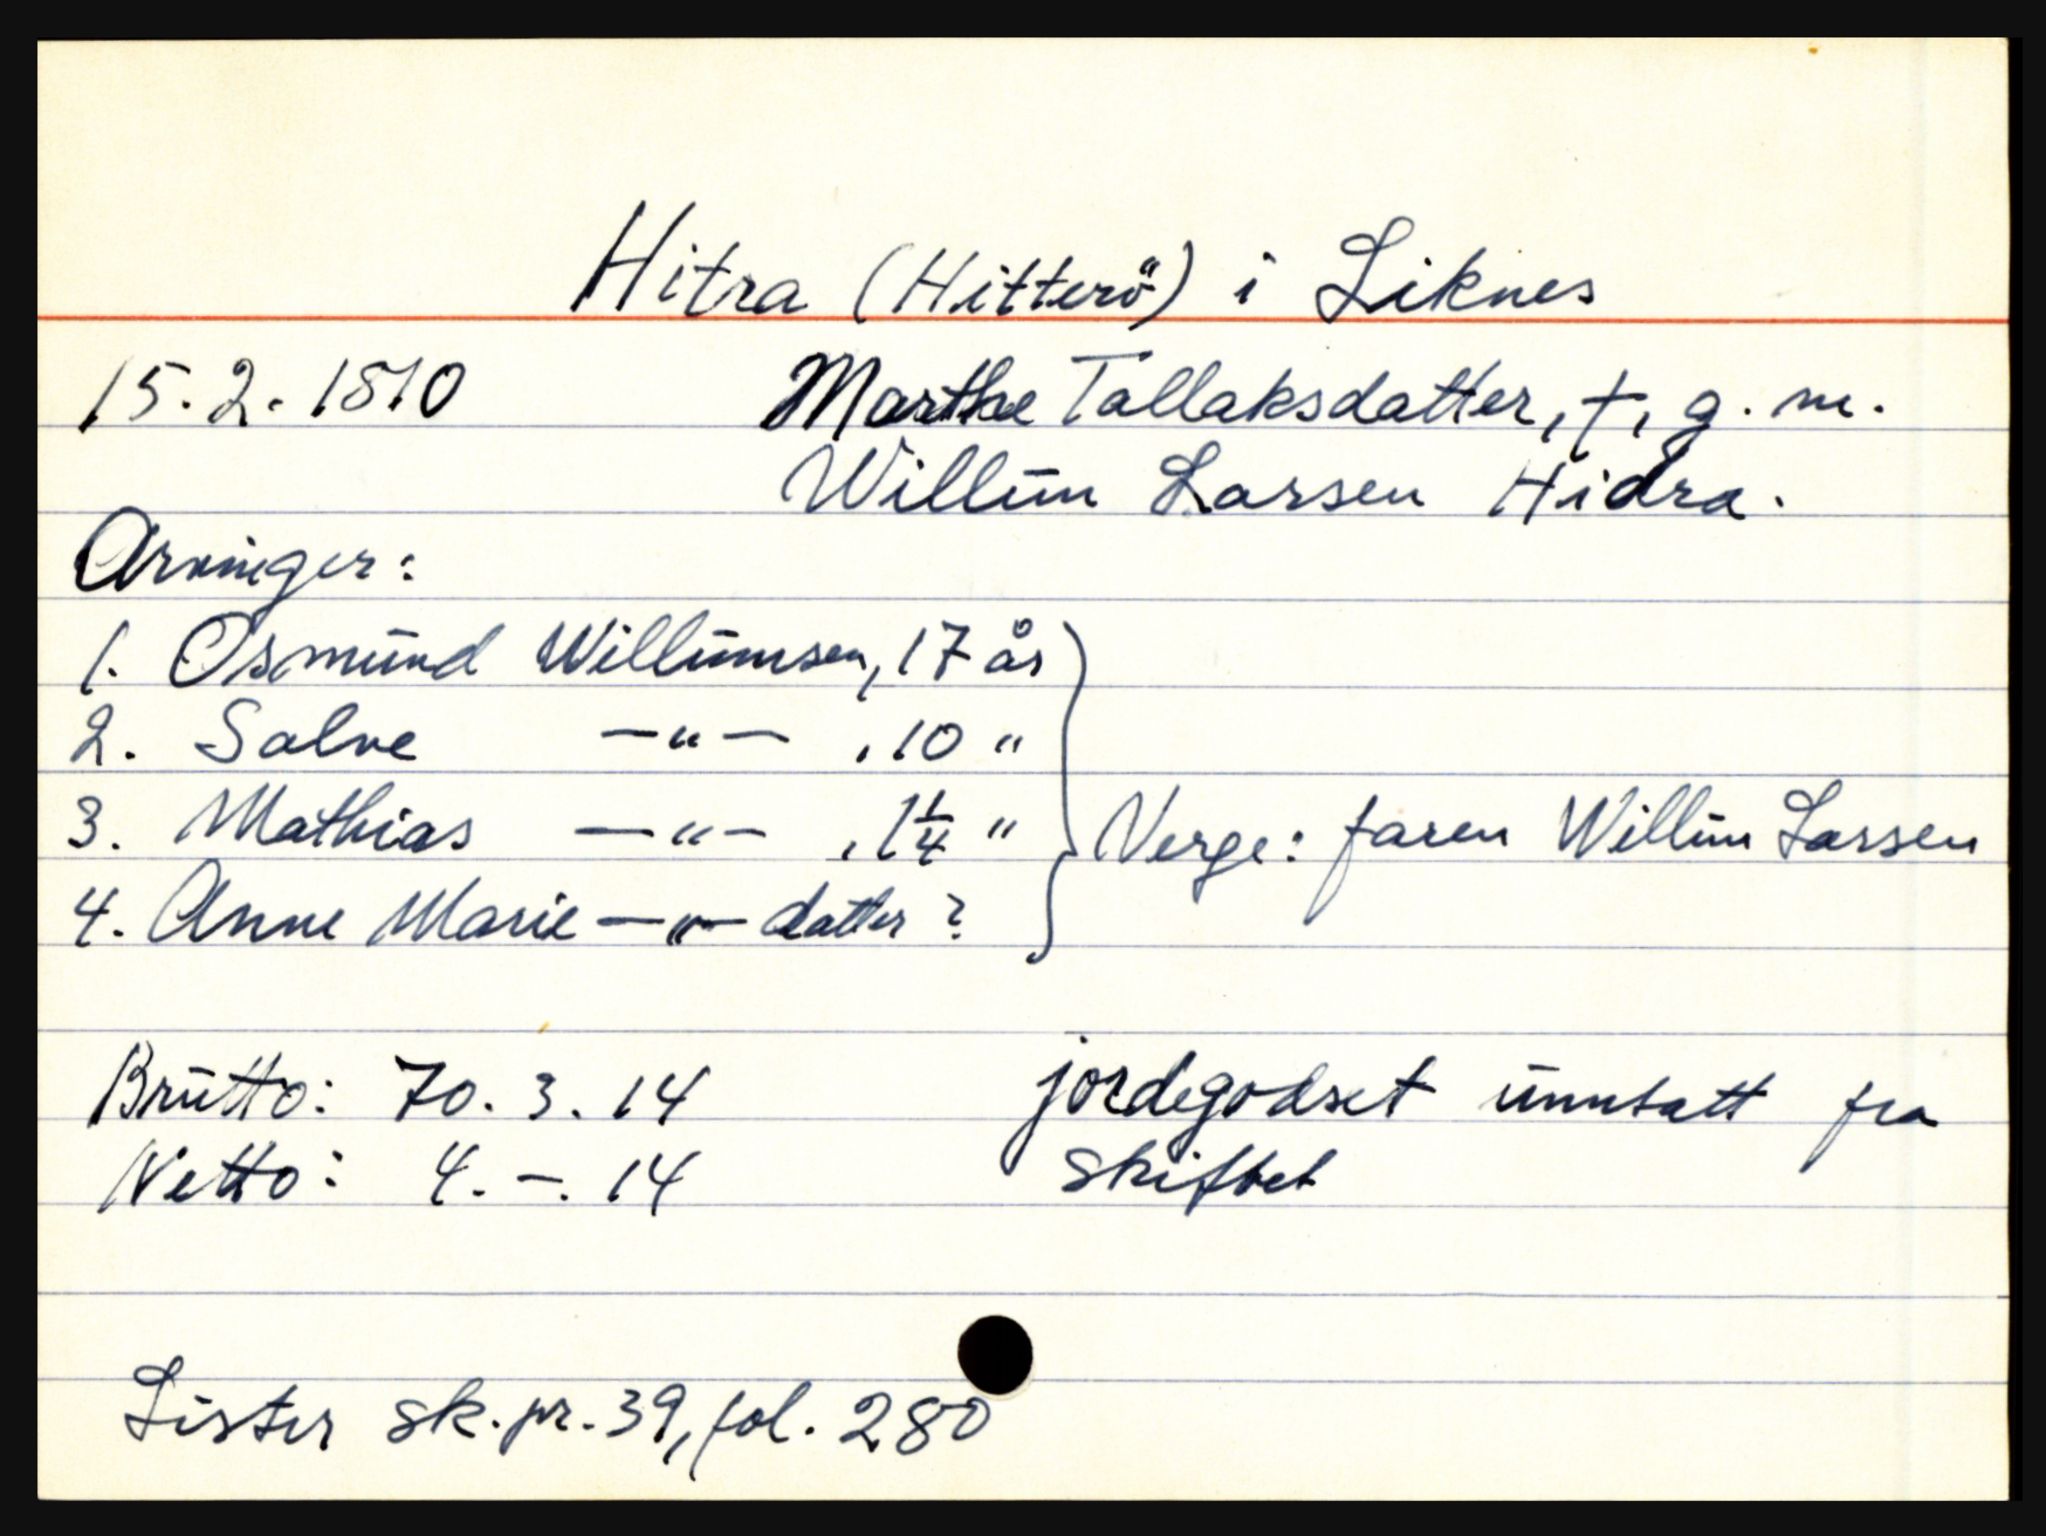 Hitra (Hitterö) i Liknes
15.2.1810 Marthe Tallaksdatter, †, g. m.
Willum Larsen Hidra.
Arvinger:
1. Osmund Willumsen, 17 år
2. Salve —"— , 10 "
3. Mathias —"— , 1 1/4 " Verge: faren Willum Larsen
4. Anne Marie —"— datter ?
Brutto: 70. 3. 14 jordegodset unntatt fra
Netto: 4. –. 14 skiftet
Lister sk.pr. 39, fol. 280